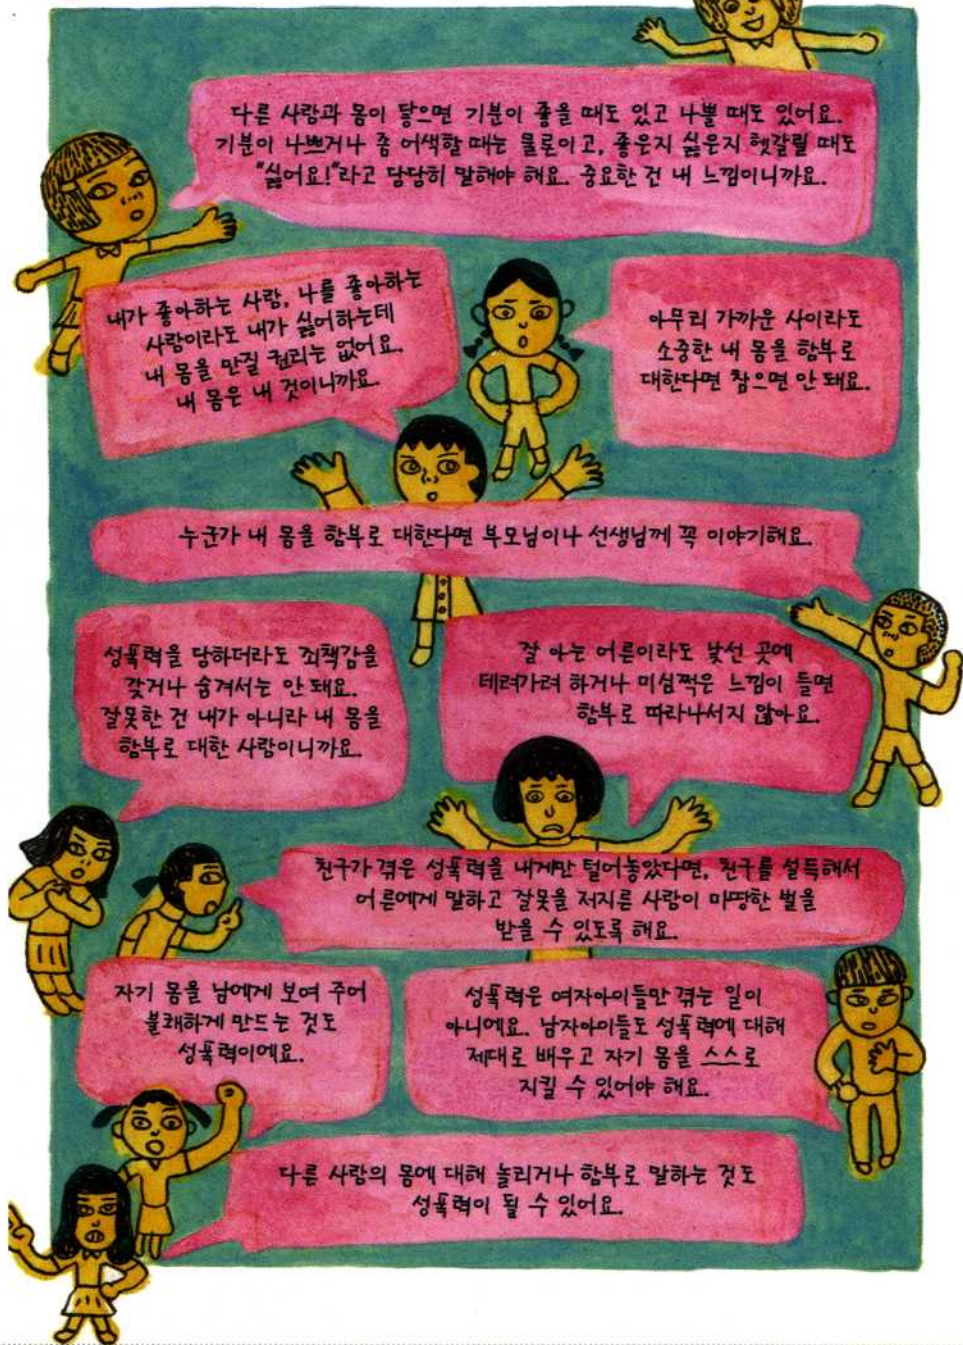 다른 사람과 몸이 닿으면 기분이 좋을 때도 있고 나쁠 때도 있어요.
기분이 나쁘거나 좀 어색할 때는 물론이고, 좋은지 싫은지 헷갈릴 때도
"싫어요!"라고 당당히 말해야 해요. 중요한 건 내 느낌이니까요.
내가 좋아하는 사람, 나를 좋아하는
사람이라도 내가 싫어하는데
내 몸을 만질 권리는 없어요.
내 몸은 내 것이니까요.
아무리 가까운 사이라도
소중한 내 몸을 함부로
대한다면 참으면 안 돼요.
누군가 내 몸을 함부로 대한다면 부모님이나 선생님께 꼭 이야기해요.
성폭력을 당하더라도 죄책감을
갖거나 숨겨서는 안 돼요.
잘못한 건 내가 아니라 내 몸을
함부로 대한 사람이니까요.
잘 아는 어른이라도 낯선 곳에
데려가려 하거나 미심쩍은 느낌이 들면
함부로 따라나서지 않아요.
친구가 겪은 성폭력을 내게만 털어놓았다면, 친구를 설득해서
어른에게 말하고 잘못을 저지른 사람이 마땅한 벌을
받을 수 있도록 해요.
자기 몸을 남에게 보여 주어
불쾌하게 만드는 것도
성폭력이에요.
성폭력은 여자아이들만 겪는 일이
아니에요. 남자아이들도 성폭력에 대해
제대로 배우고 자기 몸을 스스로
지킬 수 있어야 해요.
다른 사람의 몸에 대해 놀리거나 함부로 말하는 것도
성폭력이 될 수 있어요.